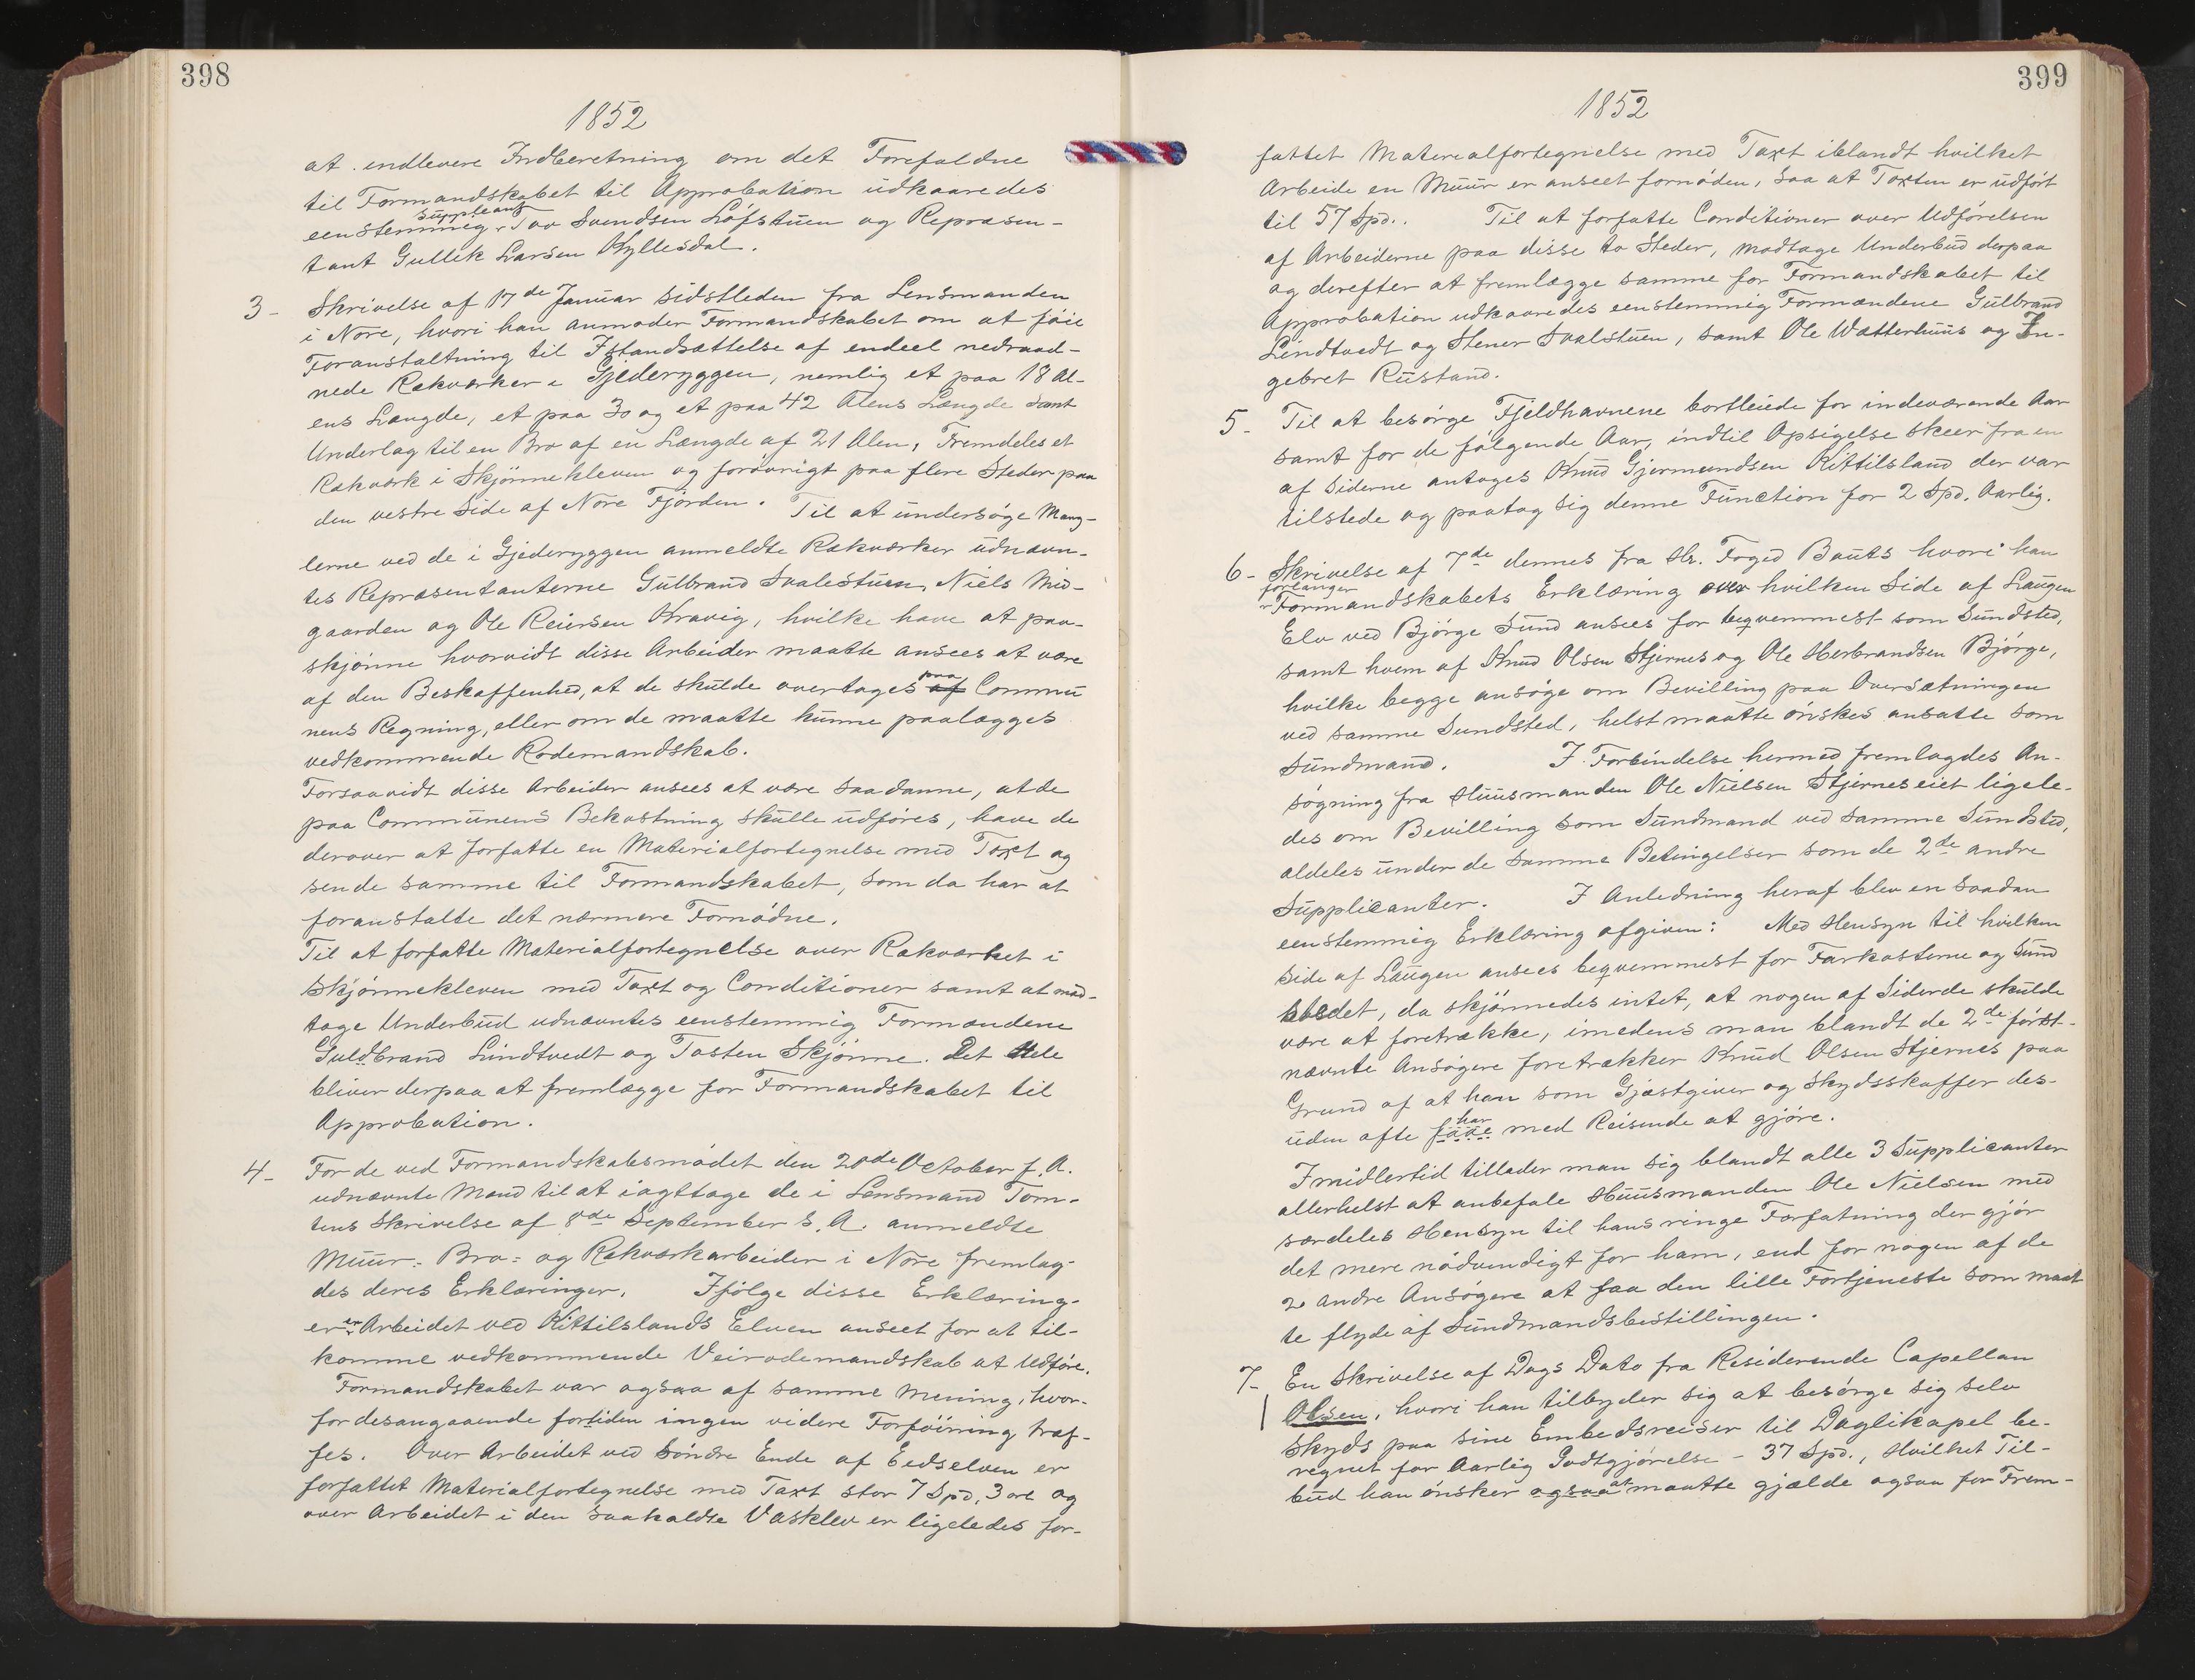 398
1852
at indlevere Indberetning om det Forefaldne
til Formandskabet til Approbation udkaaredes
eenstemmig Suppleant Tov Svendsen Løfstuen og Repræsen-
tant Gullik Larsen Kyllesdal.
3- Skrivelse af 17de Januar sidstleden fra Lensmanden
i Nore, hvori han anmoder Formandskabet om at føie
Foranstaltning til Istandsættelse af endeel nedraad-
nede Rækværker i Gjederyggen, nemlig et paa 18 Al-
ens Længde, et paa 30 og et paa 42 Alens Længde samt
Underlag til en Bro af en Længde af 21 Alen, Fremdeles et
Rækværk i Skjønnekleven og forøvrigt paa flere Steder paa
den vestre Side af Nore Fjorden. Til at undersøge Mang-
lerne ved de i Gjederyggen anmeldte Rækværker udnævn-
tes Repræsentanterne Gulbrand Svalestuen, Niels Mid-
gaarden og Ole Reiersen Kravig, hvilke have at paa-
skjønne hvorvidt disse Arbeider maatte ansees at være
af den Beskaffenhed, at de skulde overtages af paa Commu
nens Regning, eller om de maatte kunne paalægges
vedkommende Rodemandskab.
Forsaavidt disse Arbeider ansees at være saadanne, at de
paa Communens Bekostning skulle udføres, have de
derover at forfatte en Materialfortegnelse med Taxt og
sende samme til Formandskabet, som da har at
foranstalte det nærmere Fornødne.
Til at forfatte Materialfortegnelse over Rækværket i
Skjønnekleven med Taxt og Conditioner samt at mod-
tage Underbud udnævntes eenstemmig Formændene
Guldbrand Lindtvedt og Tosten Skjønne. Det Hele
bliver derpaa at fremlægge for Formandskabet til
Approbation.
4- For de ved Formandskabsmødet den 20de October f. A.
udnævnte Mænd til at iagttage de i Lensmand Tom-
tens Skrivelse af 8de September s. A. anmeldte
Muur- Bro- og Rækværkarbeider i Nore fremlag-
des deres Erklæringer. Ifølge disse Erklæring-
er er Arbeidet ved Kittilslands Elven anseet for at til-
komme vedkommende Veirodemandskab at udføre.
Formandskabet var ogsaa af samme Mening, hvor-
for desangaaende fortiden ingen videre Forføining traf-
fes. Over Arbeidet ved Søndre Ende af Eidselven er
forfattet Materialfortegnelse med Taxt stor 7 Spd. 3 ort og
over Arbeidet i den saakaldte Vasklev er ligeledes for-
399
1852
fattet Materialfortegnelse med Taxt iblandt hvilket
Arbeide en Muur er anseet fornøden, saa at Taxten er udført
til 57 Spd.. Til at forfatte Conditioner over Udførelsen
af Arbeiderne paa disse to Steder, modtage Underbud derpaa
og derefter at fremlægge samme for Formandskabet til
Approbation udkaaredes eenstemmig Formændene Gulbrand
Lindtvedt og Stener Svalstuen, samt Ole Wätterhuus og In-
gebret Rustand.
5- Til at besørge Fjeldhavnene bortleiede for indeværende Aar
samt for de følgende Aar, indtil Opsigelse skeer fra en
af Siderne antoges Knud Gjermundsen Kittilsland der var
tilstede og paatog sig denne Function for 2 Spd. Aarlig.
6- Skrivelse af 7de dennes fra Hr. Foged Bauts hvori han
forlanger Formandskabets Erklæring over hvilken Side af Laugen
Elv ved Bjørge Sund ansees for beqvemmest som Sundsted,
samt hvem af Knud Olsen Stjernes og Ole Herbrandsen Bjørge,
hvilke begge ansøge om Bevilling paa Oversætningen
ved samme Sundsted, helst maatte ønskes ansatte som
Sundmand. I Forbindelse hermed fremlagdes An-
søgning fra Huusmanden Ole Nielsen Stjerneseiet ligele-
des om Bevilling som Sundmand ved samme Sundsted,
aldeles under de samme Betingelser som de 2de andre
Supplicanter. I Anledning heraf blev en saadan
eenstemmig Erklæring afgiven: Med Hensyn til hvilken
Side af Laugen ansees beqvemmest for Farkosterne og Sund
stedet, da skjønnedes intet, at nogen af Siderde skulde
være at foretrække, imedens man blandt de 2de først-
nævnte Ansøgere foretrækker Knud Olsen Stjernes paa
Grund af at han som Gjæstgiver og Skydsskaffer des-
uden ofte faae har med Reisende at gjøre.
Imidlertid tillader man sig blandt alle 3 Supplicanter
allerhelst at anbefale Huusmanden Ole Nielsen med
særdeles Hensyn til hans ringe Forfatning der gjør
det mere nødvendigt for ham, end for nogen af de
2 andre Ansøgere at faa den lille Fortjeneste som maat
te flyde af Sundmandsbestillingen.
7- En Skrivelse af Dags Dato fra Residerende Capellan
Olsen, hvori han tilbyder sig at besørge sig selv
Skyds paa sine Embedsreiser til Daglikapel be-
regnet for Aarlig Godtgjørelse - 37 Spd., Hvilket Til-
bud han ønsker ogsaa at maatte gjælde ogsaa for Frem-